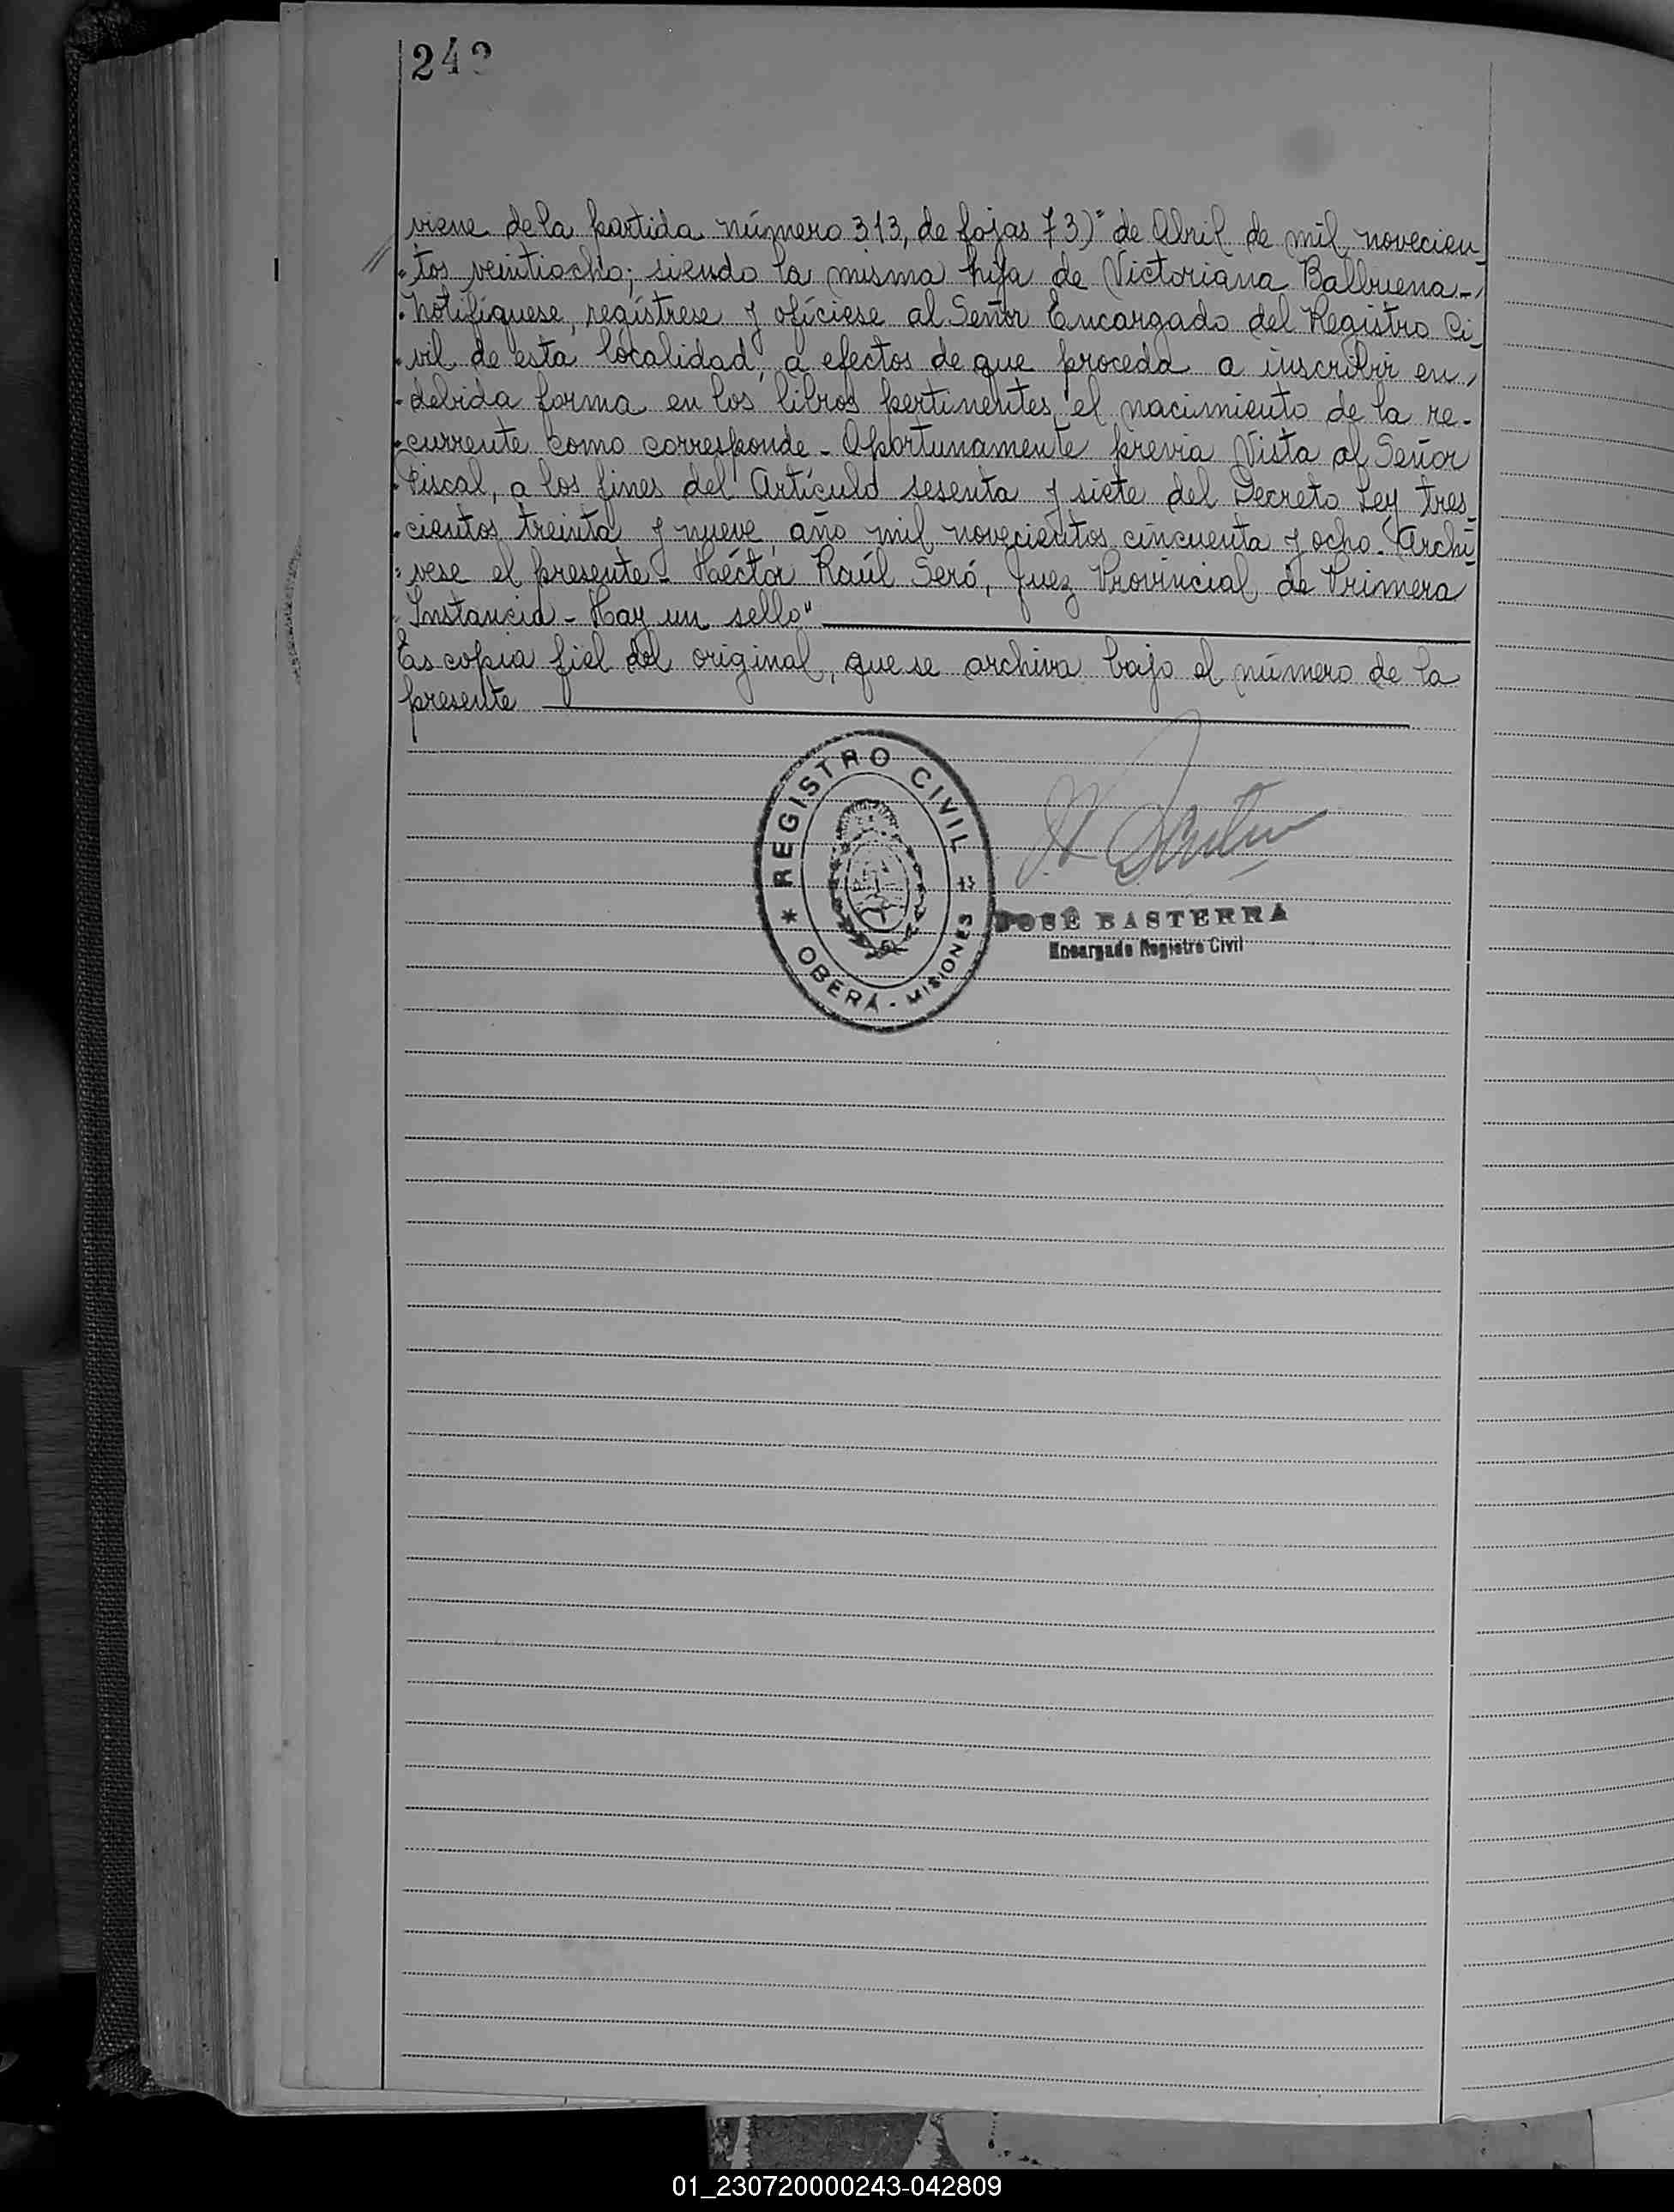 242
viene de la partida número 313, de fojas 73)" de Abril de mil novecien-
"tos veintiocho; siendo la misma hija de Victoriana Balbuena.-
"Notifíquese, regístrese y ofíciese al Señor Encargado del Registro Ci-
"vil de esta localidad, a efectos de que proceda a inscribir en
"debida forma en los libros pertinentes el nacimiento de la re-
"currente como corresponde - Oportunamente previa Vista al Señor
"Fiscal, a los fines del Artículo sesenta y siete del Decreto Ley tres-
"cientos treinta y nueve, año mil novecientos cincuenta y ocho. Archí-
"vese el presente - Héctor Raúl Seró, Juez Provincial de Primera
"Instancia - Hay un sello"
Es copia fiel del original, que se archiva bajo el número de la
presente
REGISTRO CIVIL
OBERÁ - MISIONES
JOSÉ BASTERRA
Encargado Registro Civil
01_230720000243-042809